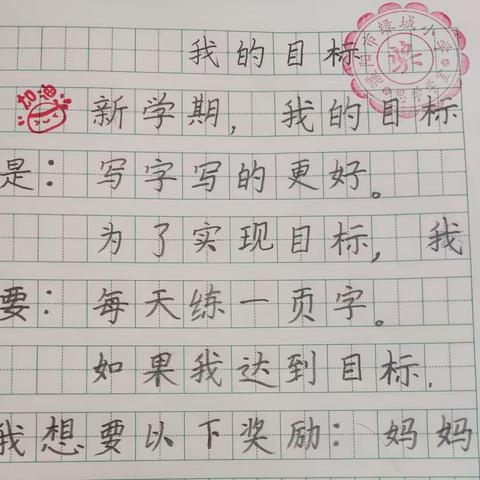 我的目标
加油
新学期，我的目标
是：写字写的更好。
为了实现目标，我
要：每天练一页字。
如果我达到目标.
我想要以下奖励：妈妈